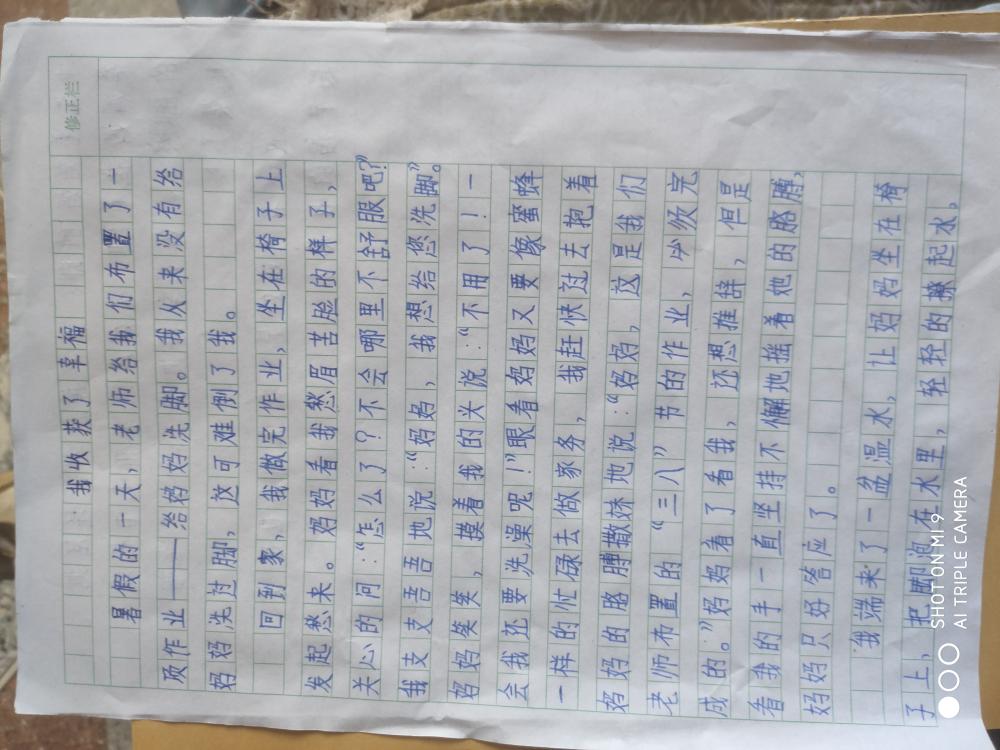 修正栏
我收获了幸福
暑假的一天，老师给我们布置了一
项作业——给妈妈洗脚。我从来没有给
妈妈洗过脚，这可难倒了我。
回到家，我做完作业，坐在椅子上
发起愁来。妈妈看我愁眉苦脸的样子，
关心的问：“怎么了？不会哪里不舒服吧？”
我支支吾吾地说：“妈妈，我想给您洗脚”。
妈妈笑笑，摸着我的头说：“不用了！一
会我还要洗澡呢！”眼看妈妈又要像蜜蜂
一样的忙碌去做家务，我赶快过去抱着
妈妈的胳膊撒妹地说：“妈妈，这是我们
老师布置的“三八”节的作业，必须完
成的。”妈妈看了看我，还想推辞，但是
看我的手一直坚持不懈地摇着她的胳膊，
妈妈只好答应了。
我端来了一盆温水，让妈妈坐在椅
子上，把脚泡在水里，轻轻的撩起水，
SHOT ON MI 9
AI TRIPLE CAMERA